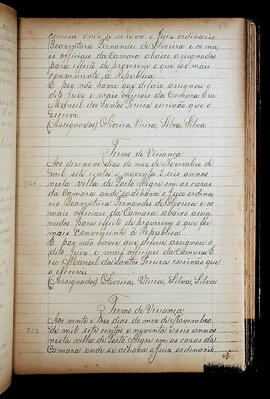 camara onde se achava o Juiz ordinario
Boaventura Fernandes de Oliveira e os ma
is officiaes da Camara abaixo assignados
para effeito de proverem o que for mais
conveniente á Republica.
E por não haver que deferir assignou o
dito Juiz e mais officiaes da Camara Eu
Manoel dos Santos Pereira escrivão que o
escrevi
(Assignados) Oliveira, Vieira, Silva, Silva.
Termo de Veriança
Aos dezenove dias do mez de Novembro de
mil sete centos e noventa e seis annos
nesta villa de Porto Alegre em as casas
da Camara onde se achava o Juiz ordina
rio Boaventura Fernandes de Oliveira e os
mais officiaes da Camara abaixo assig
nados para effeito de proverem o que for
mais conveniente á Republica
E por não haver que deferir assignou o
dito Juiz e mais officiaes da Camara E
eu Manoel dos Santos Pereira escrivão que
o escrevi
(Assignados) Oliveira, Vieira, Silva, Silva
Termo de Veriança
Aos vinte e tres dias do mez de Novembro
de mil sete centos e noventa e seis annos
nesta villa de Porto Alegre em as casas da
Camara onde se achava o Juiz ordinario